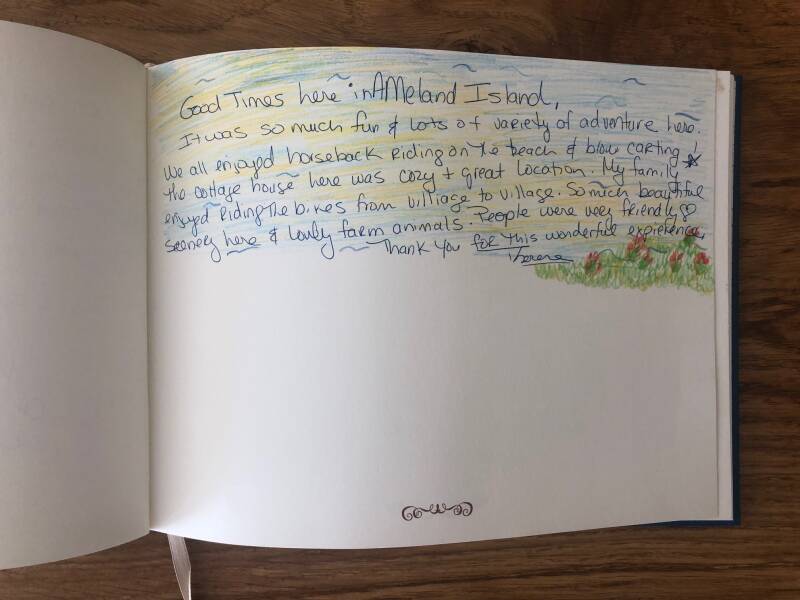 Good Times here in AMeland Island,
It was so much fun & lots of variety of adventure here.
We all enjoyed horseback Riding on the beach & blow carting!
the cottage house here was cozy + great location. My family
enjoyed Riding The bikes from villiage to village. So much beautiful
scenery here & lovly farm animals. People were very friendly
Thank you for this wonderful expierence,